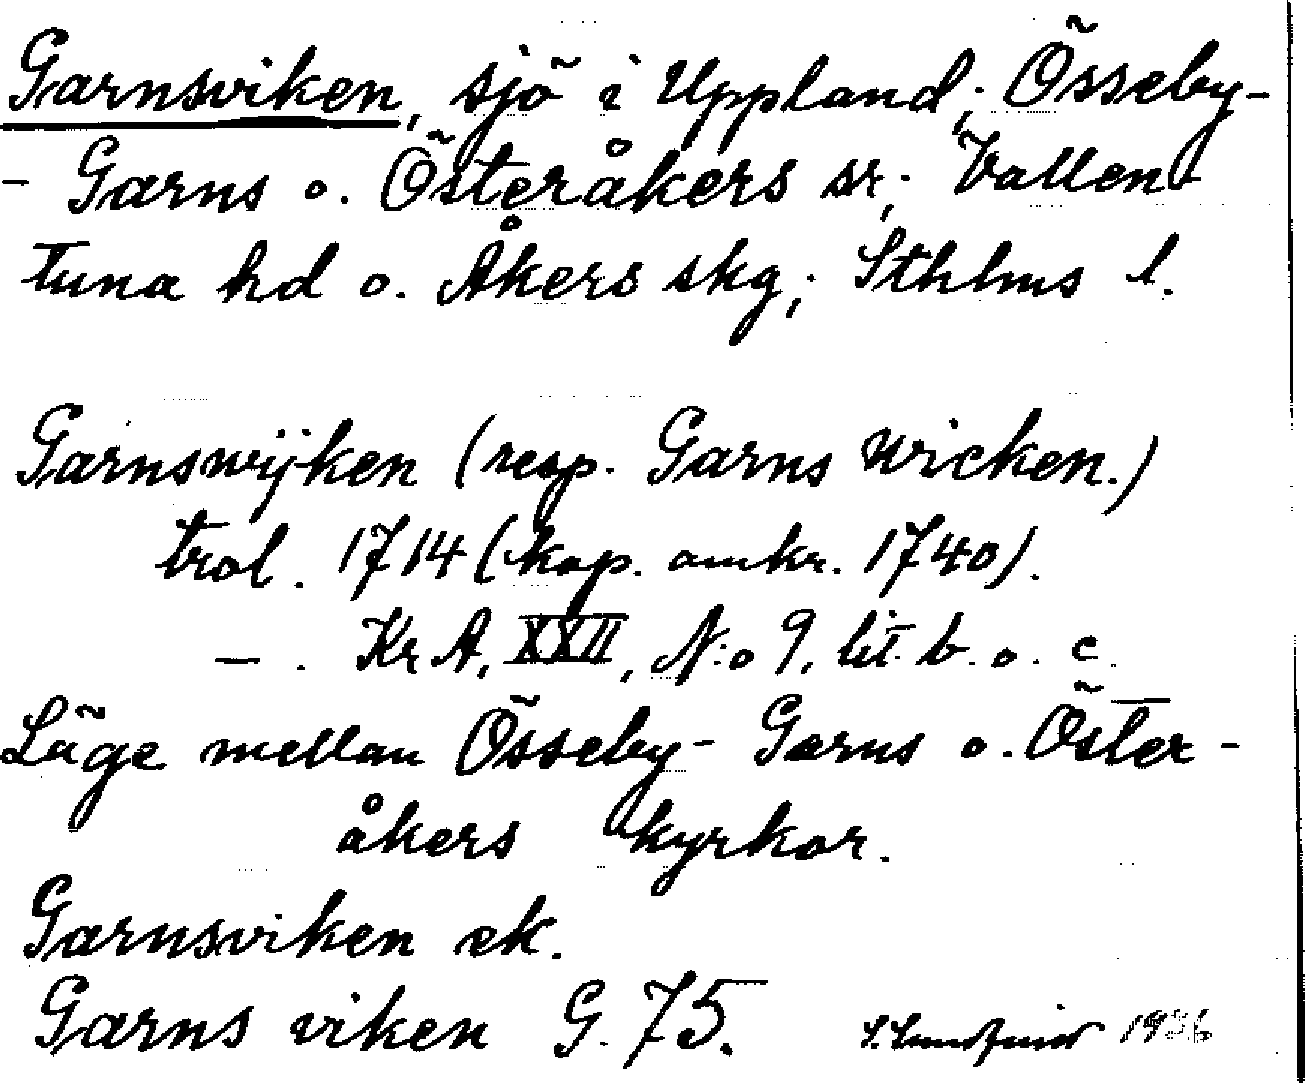 Garnsviken, sjö i Uppland; Össeby-
- Garns o. Österåkers sr; Vallen-
tuna hd o. Åkers skg; Sthlms l.
Garnswijken (resp. Garns Wicken.)
trol. 1714 (kop. omkr. 1740).
— . KrA, XXII, N:o 9, lit. b. o. c.
Läge mellan Össeby- Garns o. Öster-
åkers kyrkor.
Garnsviken ek.
Garns viken G. 75.
1936